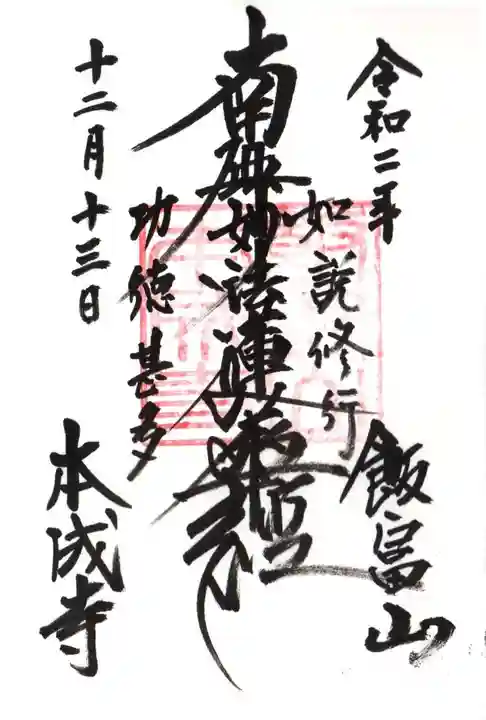 令和二年
飯富山
如説修行
南無妙法蓮華経
功徳甚多
十二月十三日
本成寺